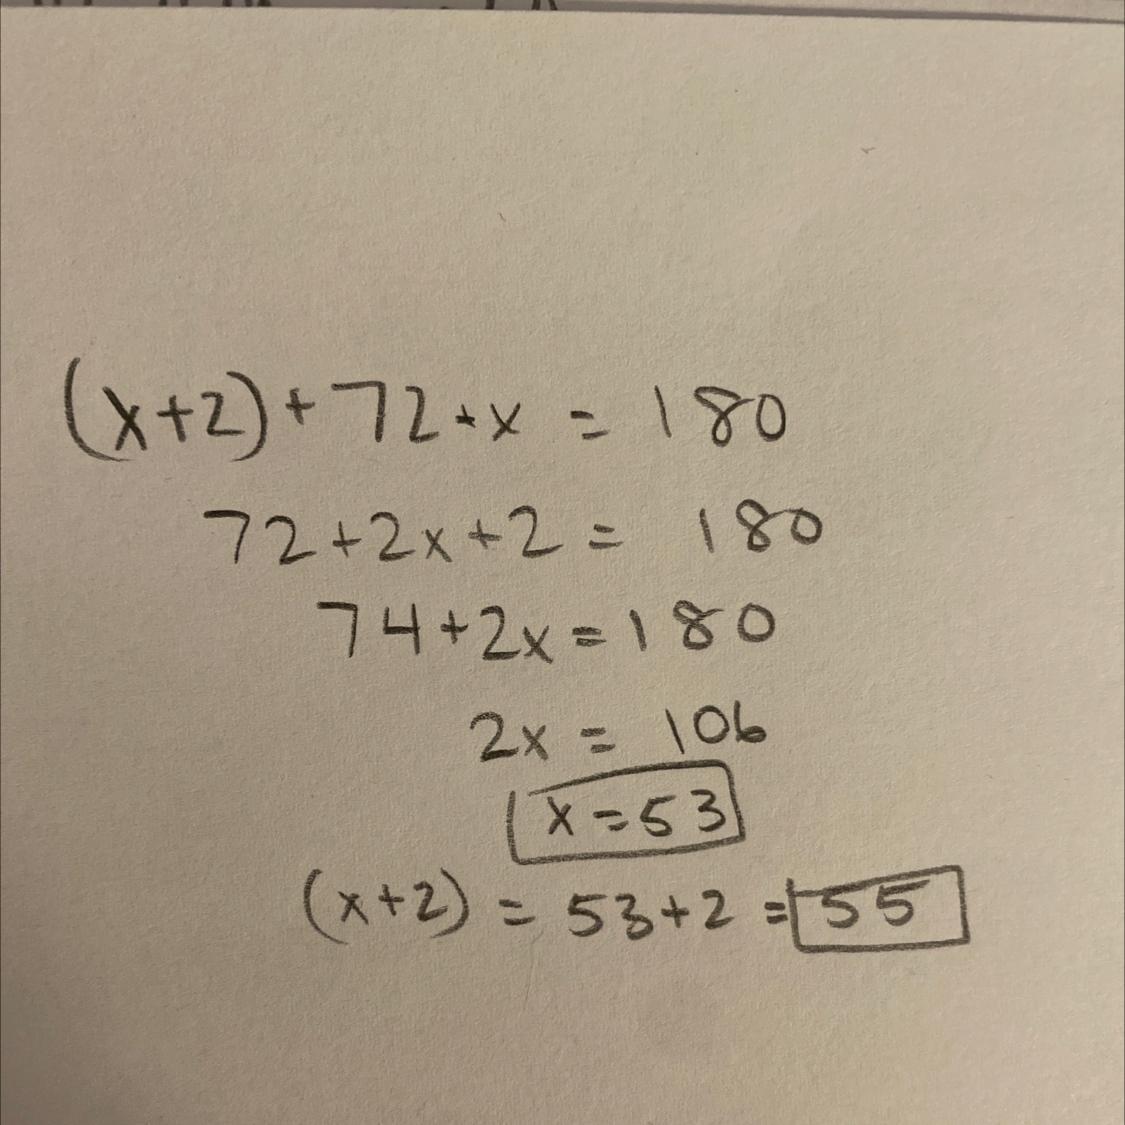 (x+2)+72+x = 180
72+2x+2 = 180
74+2x=180
2x = 106
x=53
(x+2) = 53+2 =55